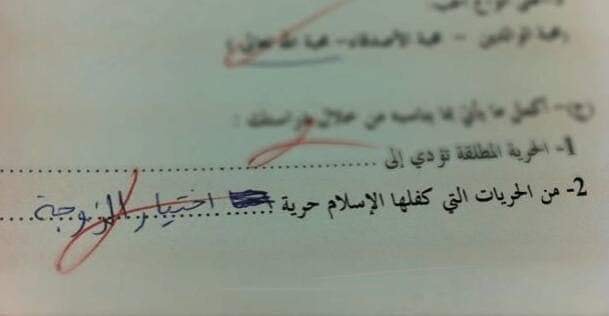 (محبة الوالدين - محبة الأصدقاء - محبة الله تعالى)
(ج)- أكمل ما يأتي بما يناسبه من خلال دراستك :
1- الحرية المطلقة تؤدي إلى ........................................
2- من الحريات التي كفلها الإسلام حرية اختيار الزوجة